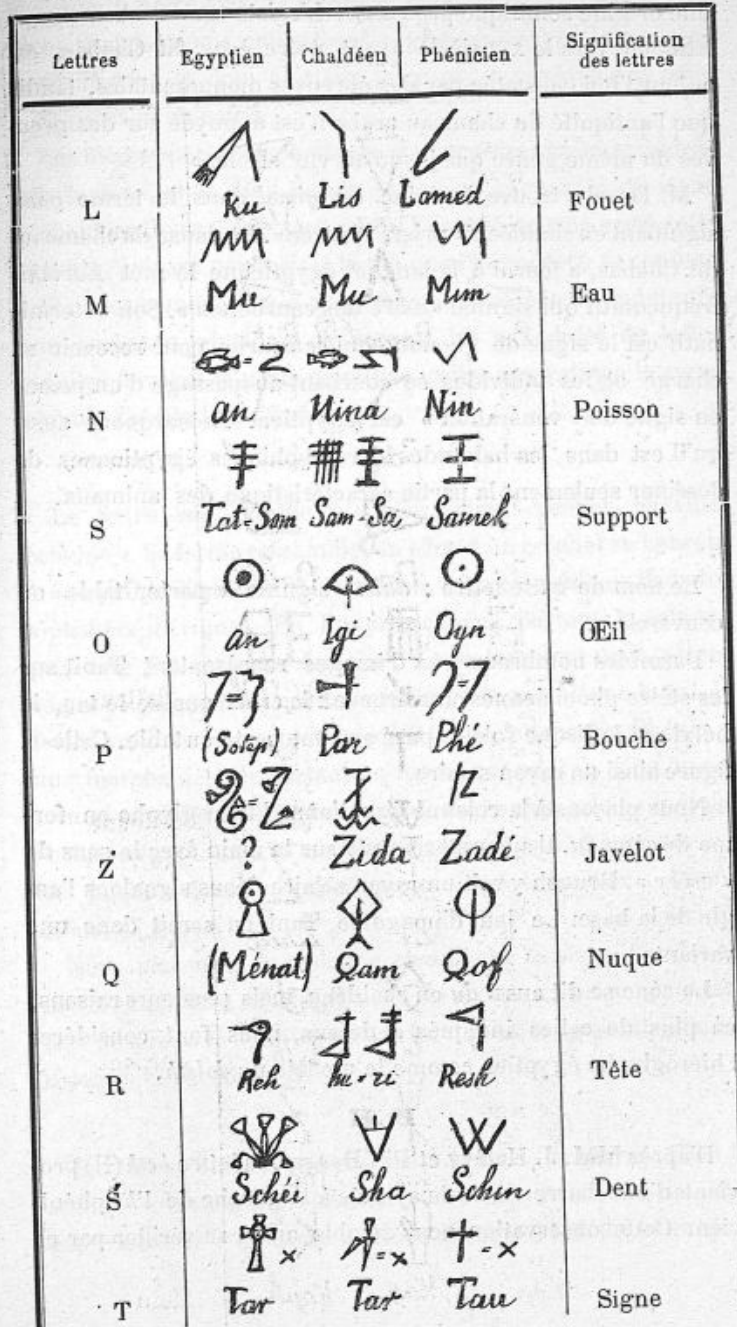 Lettres Egyptien Chaldéen Phénicien Signification des lettres
L Ku Lis Lamed Fouet
M Mu Mu Mim Eau
N an Nina Nin Poisson
S Tat-Som Sam-Sa Samek Support
O an Igi Oyn Œil
P (Sotep) Par Phé Bouche
Z ? Zida Zadé Javelot
Q (Ménat) Qam Qof Nuque
R Reh Resh Tête
Ś Schéi Sha Schin Dent
T Tar Tar Tau Signe